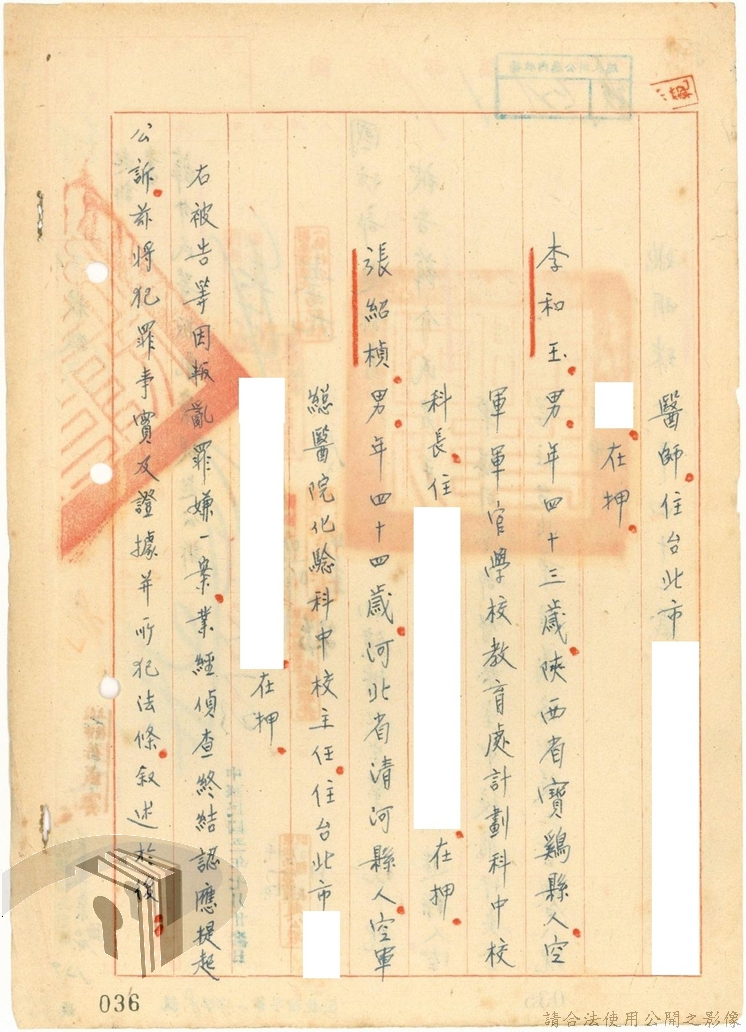 醫師住台北市
在押
李和玉男年四十三歲陝西省寶鷄縣人空
軍軍官學校教育處計劃科中校
科長住 在押
張紹楨男年四十四歲河北省清河縣人空軍
總醫院化驗科中校主任住台北市
在押
右被告等因叛亂罪嫌一案業經偵查終結認應提起
公訴茲將犯罪事實及證據并所犯法條叙述於後
036
請合法使用公開之影像